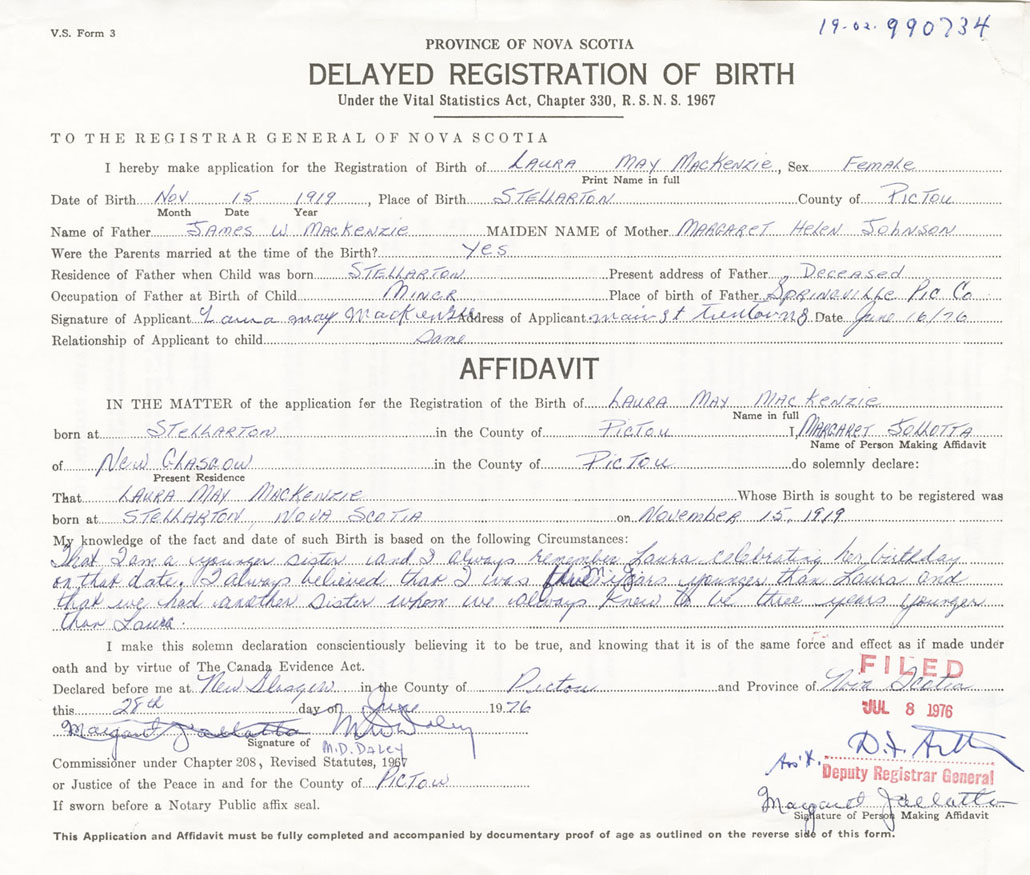 V.S. Form 3
19-02-990734
PROVINCE OF NOVA SCOTIA
DELAYED REGISTRATION OF BIRTH
Under the Vital Statistics Act, Chapter 330, R. S. N. S. 1967
TO THE REGISTRAR GENERAL OF NOVA SCOTIA
I hereby make application for the Registration of Birth of LAURA MAY MACKENZIE, Sex FEMALE
Print Name in full
Date of Birth NOV 15 1919, Place of Birth STELLARTON County of PICTOU
Month Date Year
Name of Father JAMES W MACKENZIE MAIDEN NAME of Mother MARGARET HELEN JOHNSON
Were the Parents married at the time of the Birth? YES
Residence of Father when Child was born STELLARTON Present address of Father DECEASED
Occupation of Father at Birth of Child MINER Place of birth of Father SPRINGVILLE PIC CO
Signature of Applicant Laura May MacKenzie Address of Applicant main st Date June 16/76
Relationship of Applicant to child Same
AFFIDAVIT
IN THE MATTER of the application for the Registration of the Birth of LAURA MAY MACKENZIE
Name in full
born at STELLARTON in the County of PICTOU I, MARGARET JOLLOTTA
Name of Person Making Affidavit
of NEW GLASGOW in the County of PICTOU do solemnly declare:
Present Residence
That LAURA MAY MACKENZIE Whose Birth is sought to be registered was
born at STELLARTON, NOVA SCOTIA on NOVEMBER 15, 1919
My knowledge of the fact and date of such Birth is based on the following Circumstances:
That I am a younger sister and I always remember Laura celebrating her birthday
on that date. I always believed that I was years younger than Laura and
that we had another sister whom we always knew to be three years younger
than Laura.
I make this solemn declaration conscientiously believing it to be true, and knowing that it is of the same force and effect as if made under
oath and by virtue of The Canada Evidence Act.
FILED
Declared before me at New Glasgow in the County of Pictou and Province of Nova Scotia
this 28th day of June 1976
JUL 8 1976
Margaret Jollotta
Signature of M.D. Daley
Commissioner under Chapter 208, Revised Statutes, 1967
or Justice of the Peace in and for the County of PICTOU
Deputy Registrar General
If sworn before a Notary Public affix seal.
Margaret Jollotta
Signature of Person Making Affidavit
This Application and Affidavit must be fully completed and accompanied by documentary proof of age as outlined on the reverse side of this form.